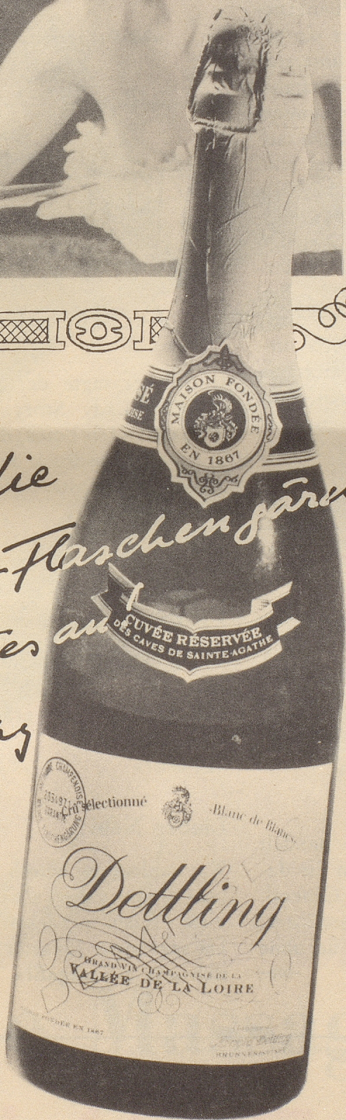 MAISON FONDÉE
EN 1867
die
-Flaschengäru
es auf
CUVÉE RÉSERVÉE
DES CAVES DE SAINTE-AGATHE
Cru sélectionné
Blanc de Blancs
Dettling
GRAND VIN CHAMPAGNISÉ DE LA
VALLÉE DE LA LOIRE
FONDÉE EN 1867
BRUNNEN